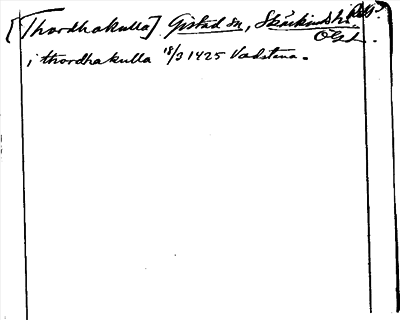 [Thordhakulla] Gistad sn, Skärkinds hd.
ÖGL.
i thordhakulla 18/3 1425 Vadstena.